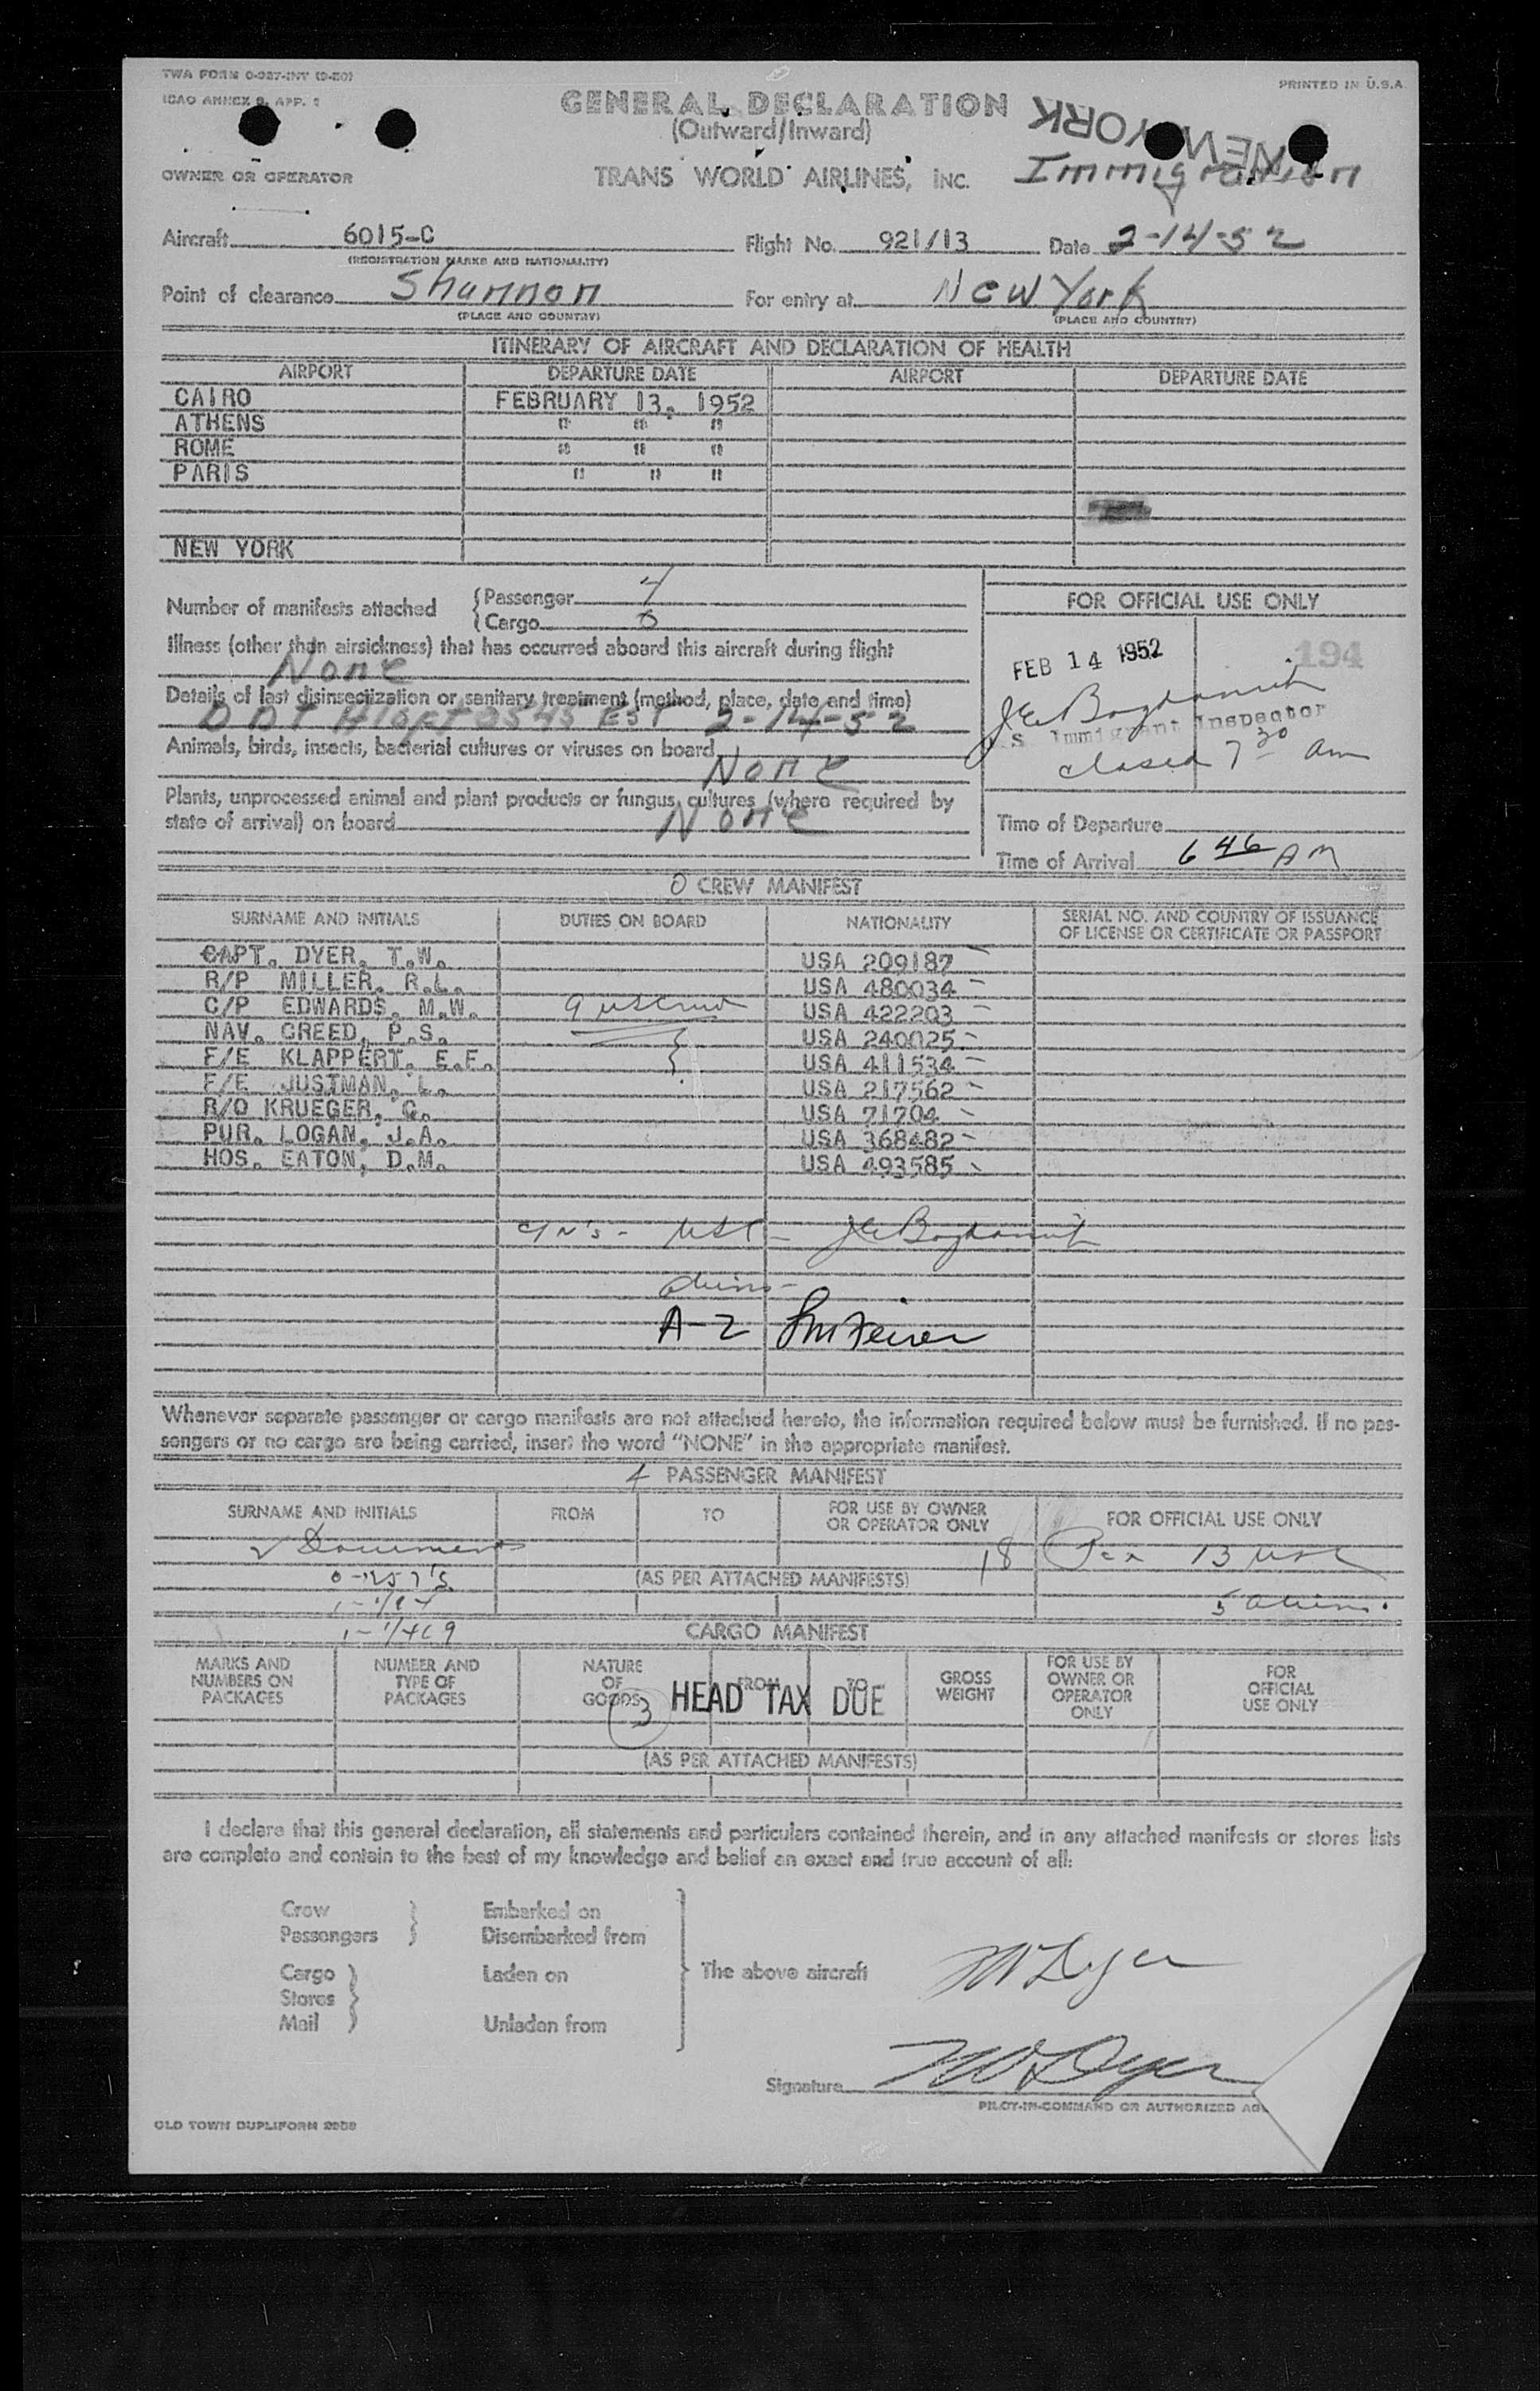 TWA FORM 0-927-INT (9-50)
PRINTED IN U.S.A.
ICAO ANNEX 9, APP. 1
GENERAL DECLARATION
(Outward/Inward)
NEW YORK
OWNER OR OPERATOR TRANS WORLD AIRLINES, INC. Immigration
Aircraft 6015-C Flight No. 921/13 Date 2-14-52
(REGISTRATION MARKS AND NATIONALITY)
Point of clearance Shannon For entry at New York
(PLACE AND COUNTRY) (PLACE AND COUNTRY)
ITINERARY OF AIRCRAFT AND DECLARATION OF HEALTH
AIRPORT DEPARTURE DATE AIRPORT DEPARTURE DATE
CAIRO FEBRUARY 13, 1952
ATHENS " " "
ROME " " "
PARIS " " "
NEW YORK
Number of manifests attached { Passenger 4
{ Cargo 0
FOR OFFICIAL USE ONLY
Illness (other than airsickness) that has occurred aboard this aircraft during flight
None
FEB 14 1952
194
Details of last disinsectization or sanitary treatment (method, place, date and time)
DDT Aloft 0545 EST 2-14-52
S Immigrant Inspector
closed 7 30 am
Animals, birds, insects, bacterial cultures or viruses on board
None
Plants, unprocessed animal and plant products or fungus cultures (where required by
state of arrival) on board None
Time of Departure
Time of Arrival 6 46 AM
0 CREW MANIFEST
SURNAME AND INITIALS DUTIES ON BOARD NATIONALITY SERIAL NO. AND COUNTRY OF ISSUANCE
OF LICENSE OR CERTIFICATE OR PASSPORT
CAPT. DYER, T.W. USA 209187
R/P MILLER, R.L. USA 480034
C/P EDWARDS, M.W. USA 422203
NAV. CREED, P.S. USA 240025
F/E KLAPPERT, E.F. USA 411534
F/E JUSTMAN, L. USA 217562
R/O KRUEGER, G. USA 71704
PUR. LOGAN, J.A. USA 368482
HOS. EATON, D.M. USA 493585
A-2
Whenever separate passenger or cargo manifests are not attached hereto, the information required below must be furnished. If no pas-
sengers or no cargo are being carried, insert the word "NONE" in the appropriate manifest.
4 PASSENGER MANIFEST
SURNAME AND INITIALS FROM TO FOR USE BY OWNER
OR OPERATOR ONLY FOR OFFICIAL USE ONLY
18 Pax 13 USC
(AS PER ATTACHED MANIFESTS)
5 aliens
CARGO MANIFEST
MARKS AND
NUMBERS ON
PACKAGES
NUMBER AND
TYPE OF
PACKAGES
NATURE
OF
GOODS
FROM
TO
GROSS
WEIGHT
FOR USE BY
OWNER OR
OPERATOR
ONLY
FOR
OFFICIAL
USE ONLY
3 HEAD TAX DUE
(AS PER ATTACHED MANIFESTS)
I declare that this general declaration, all statements and particulars contained therein, and in any attached manifests or stores lists
are complete and contain to the best of my knowledge and belief an exact and true account of all:
Crew } Embarked on
Passengers } Disembarked from
Cargo } Laden on } The above aircraft TW Dyer
Stores }
Mail } Unladen from
Signature TW Dyer
PILOT-IN-COMMAND OR AUTHORIZED AG
OLD TOWN DUPLIFORM